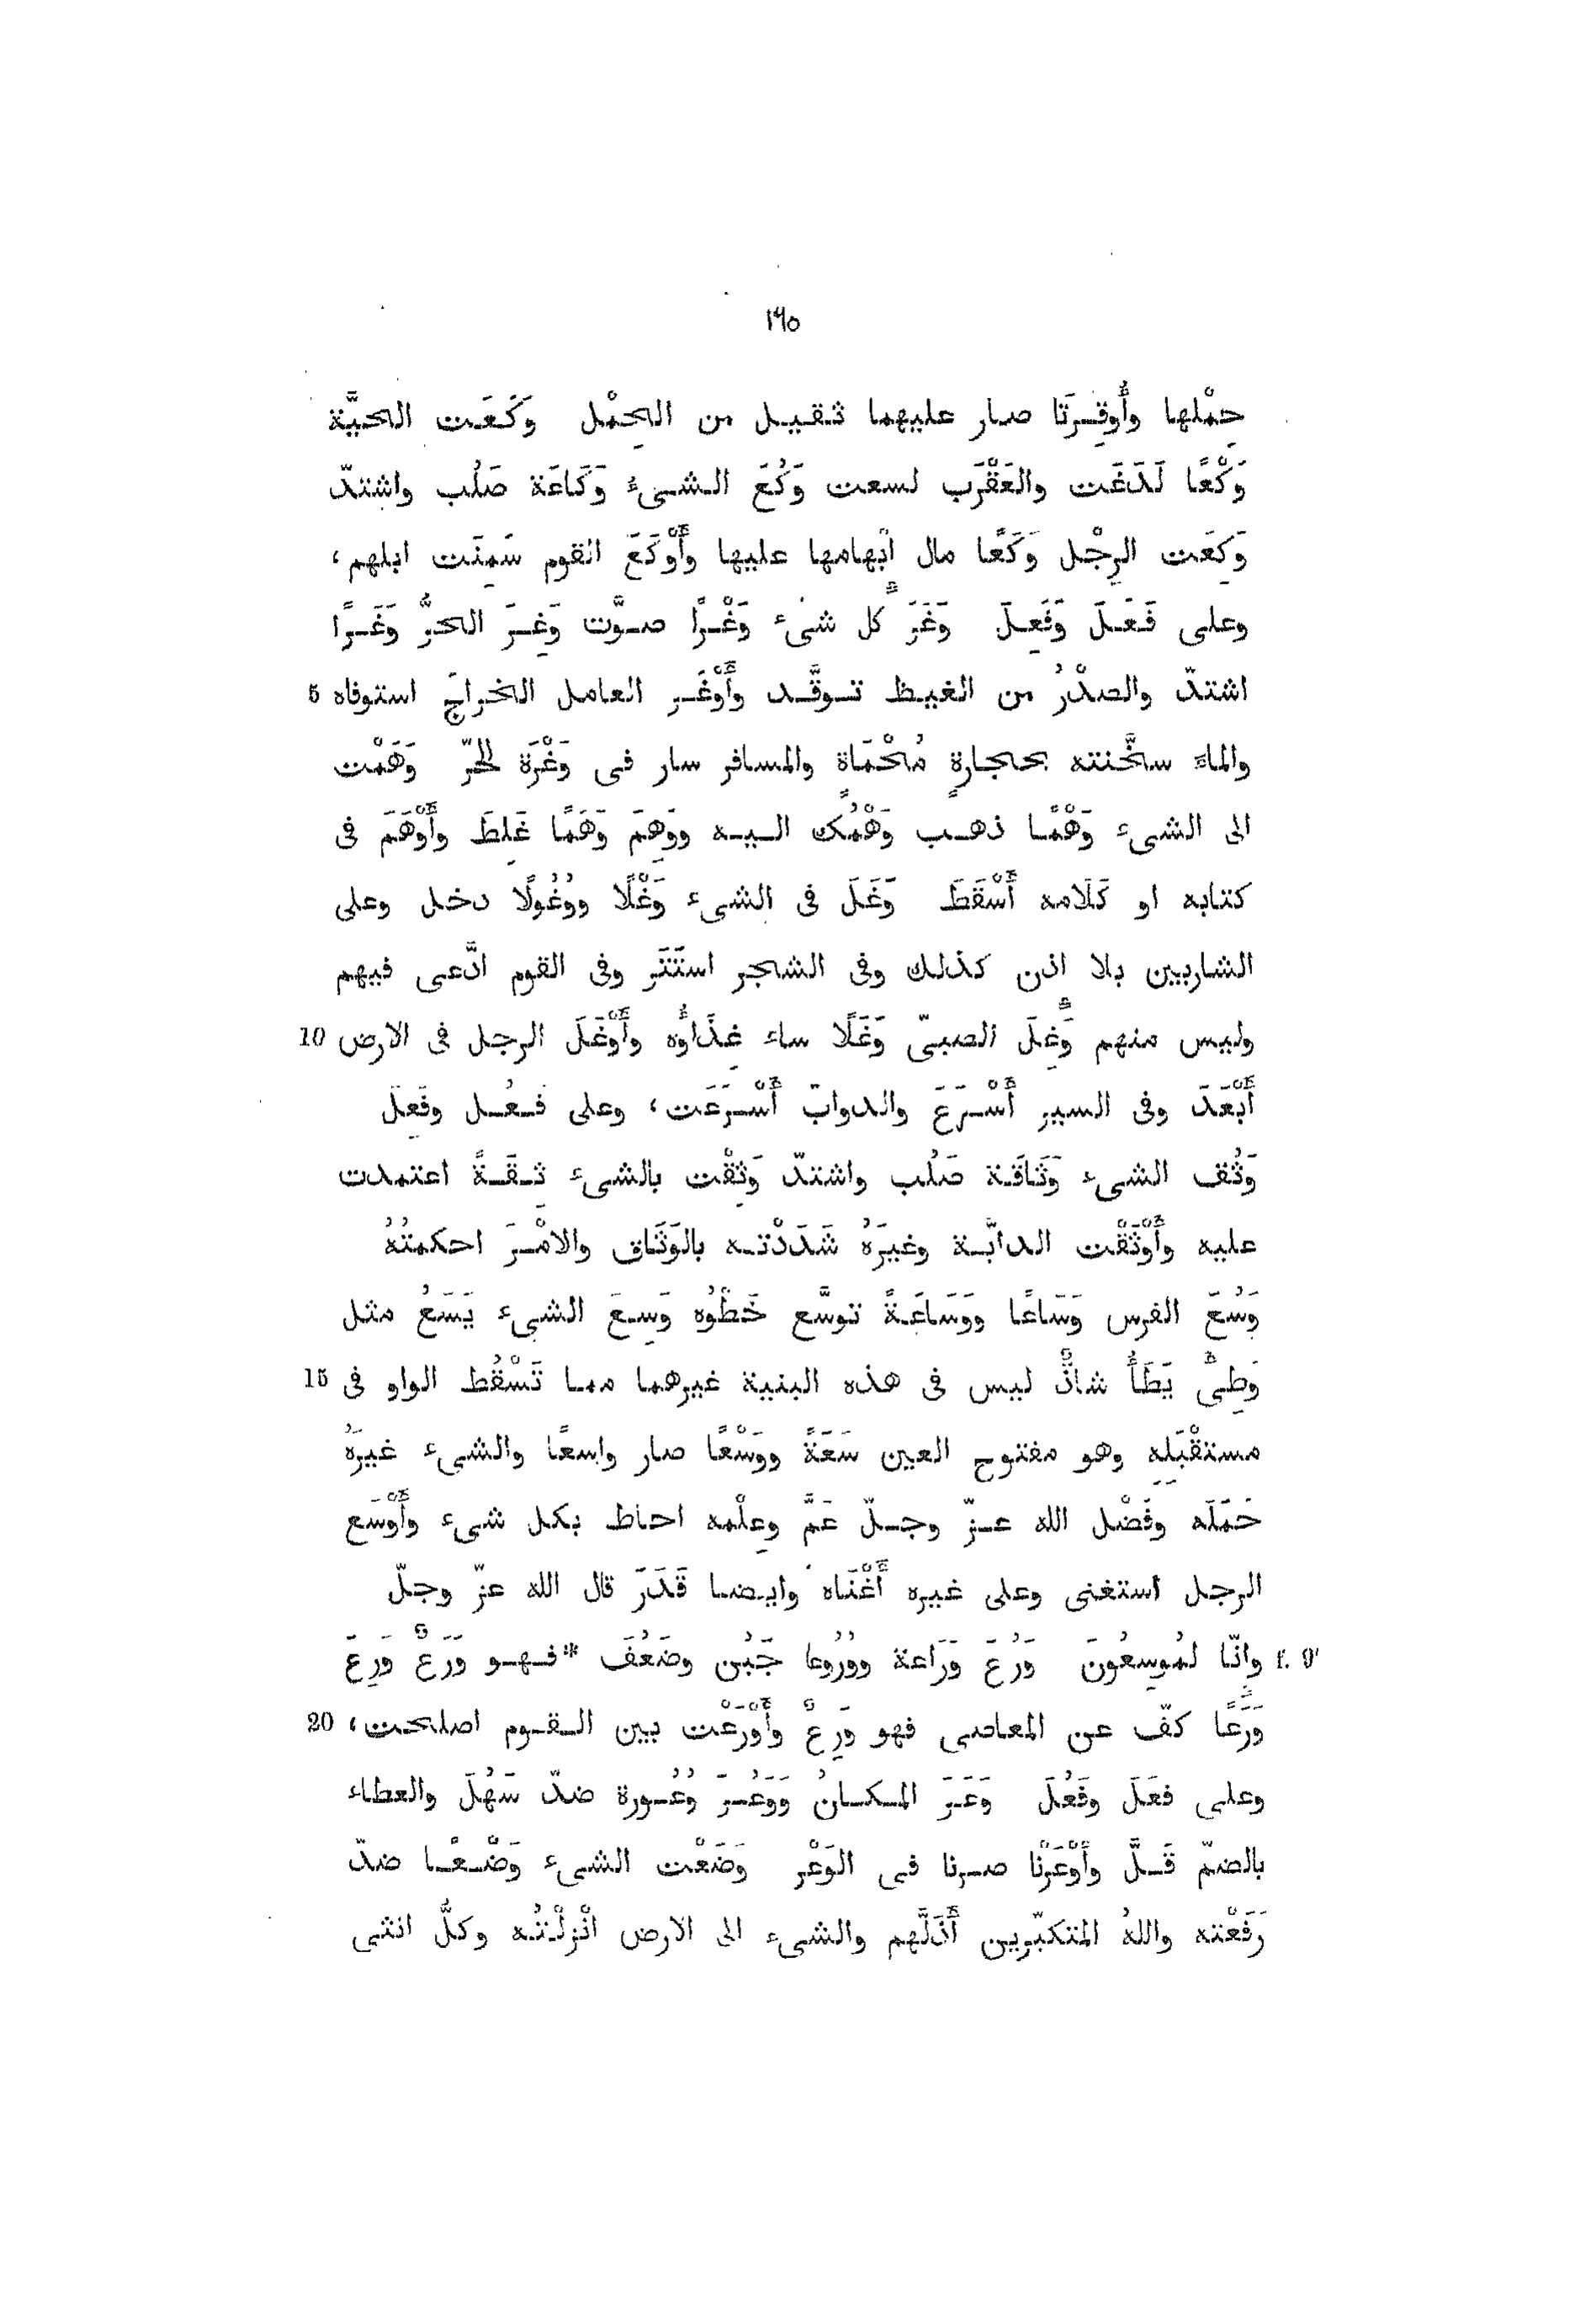 ١٩٥
حِمْلها وأُوقِرَتا صار عليهما ثقيل من الحِمْل وَكَعَت الحيَّة
وَكْعًا لَدَغَت والعَقْرَب لسعت وَكُعَ الشىءُ وَكَاعَة صَلُب واشتدّ
وَكِعَت الرِجْل وَكَعًا مال ابْهامها عليها وأَوْكَعَ القوم سَمِنَت ابلهم،
وعلى فَعَلَ وَفَعِلَ وَغَرَ كلِّ شىء وَغْرًا صوَّت وَغِرَ الحرُّ وَغَرًا
اشتدّ والصدْرُ من الغيظ توقَّد وأَوْغَر العامل الخراجَ استوفاه 5
والماءَ سخَّنته بحجارةٍ مُحْمَاةٍ والمسافر سار فى وَغْرَة الحَرّ وَهَمْت
الى الشىء وَهْمًا ذهب وَهْمُك اليه ووَهِمَ وَهَمًا غَلِطَ وأَوْهَمَ فى
كتابه او كَلَامه أَسْقَطَ وَغَلَ فى الشىء وَغْلًا ووُغُولًا دخل وعلى
الشاربين بلا اذن كذلك وفى الشجر استَتَر وفى القوم ادّعى فيهم
وليس منهم وَغِلَ الصبىّ وَغَلًا ساء غِذَاؤُه وأَوْغَلَ الرجل فى الارض 10
أَبْعَدَ وفى السير أَسْرَعَ والدوابّ أَسْرَعَت، وعلى فَعُل وفَعِلَ
وَثُق الشىء وَثَاقَة صَلُب واشتدّ وَثِقْت بالشىء ثِقَةً اعتمدت
عليه وأَوْثَقْت الدابّة وغيرَهُ شَدَدْته بالوَثَاق والامْرَ احكمتُهُ
وَسُعَ الفرس وَسَاعًا ووَسَاعَةً توسَّع خَطْوُه وَسِعَ الشىء يَسَعُ مثل
وَطِئَ يَطَأُ شاذٌّ ليس فى هذه البنية غيرهما مما تَسْقُط الواو فى 15
مستقْبَلِه وهو مفتوح العين سَعَةً ووَسْعًا صار واسعًا والشىء غيرَهُ
حَمَلَه وفَضْل الله عزّ وجلّ عَمَّ وعِلْمه احاط بكل شىء وأَوْسَع
الرجل استغنى وعلى غيره أَغْنَاه وايضا قَدَرَ قال الله عزّ وجلّ
f. 0' وانّا لمُوسِعُونَ وَرُعَ وَرَاعة ووُرُوعا جَبُن وضَعُفَ *فهو وَرَعٌ وَرِعَ
وَرَعًا كفّ عن المعاصى فهو وَرِعٌ وأَوْرَعْت بين القوم اصلحت، 20
وعلى فعَلَ وفَعُلَ وَعَرَ المكانُ ووَعُرَ وُعُورة ضدّ سَهُلَ والعطاء
بالضمّ قَلَّ وأَوْعَرْنا صرنا فى الوَعْر وَضَعْت الشىء وَضْعًا ضدّ
رَفَعْته واللهُ المتكبّرين أَذَلَّهم والشىء الى الارض انْزلْتُه وكلُّ انثى